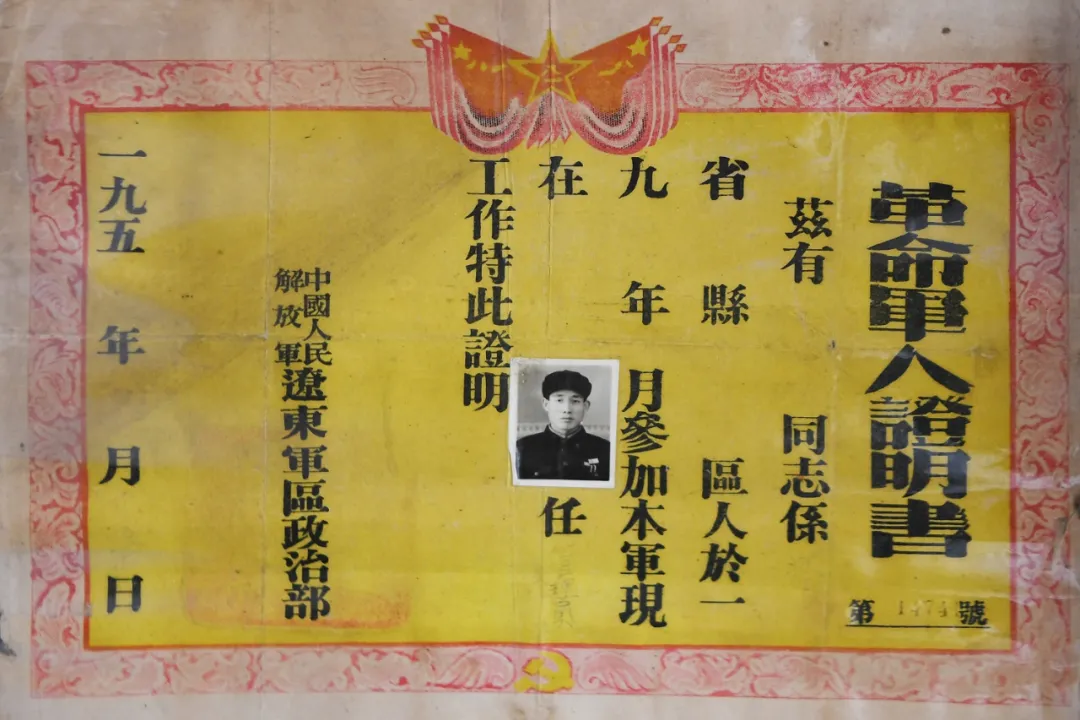 革命軍人證明書
第1474號
茲有 同志係
省 縣 區人於一
九 年 月參加本軍現
在 任
工作特此證明
中國人民解放軍遼東軍區政治部
一九五 年 月 日